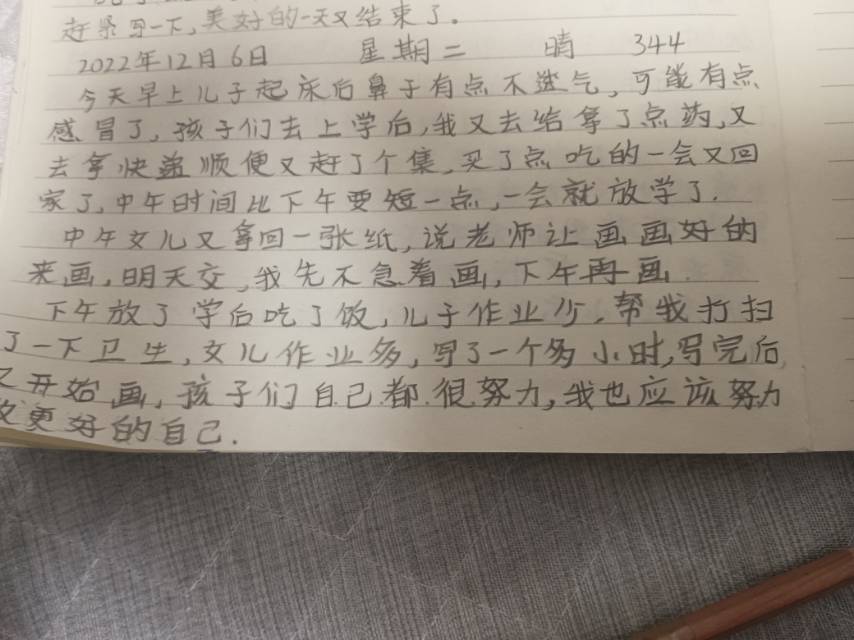 赶紧写一下,美好的一天又结束了。
2022年12月6日 星期二 晴 344
今天早上儿子起床后鼻子有点不透气,可能有点
感冒了,孩子们去上学后,我又去给拿了点药,又
去拿快递顺便又赶了个集,买了点吃的一会又回
家了,中午时间比下午要短一点,一会就放学了.
中午女儿又拿回一张纸,说老师让画画好的
来画,明天交,我先不急着画,下午再画.
下午放了学后吃了饭,儿子作业少,帮我打扫
了一下卫生,女儿作业多,写了一个多小时,写完后
又开始画,孩子们自己都很努力,我也应该努力
做更好的自己.